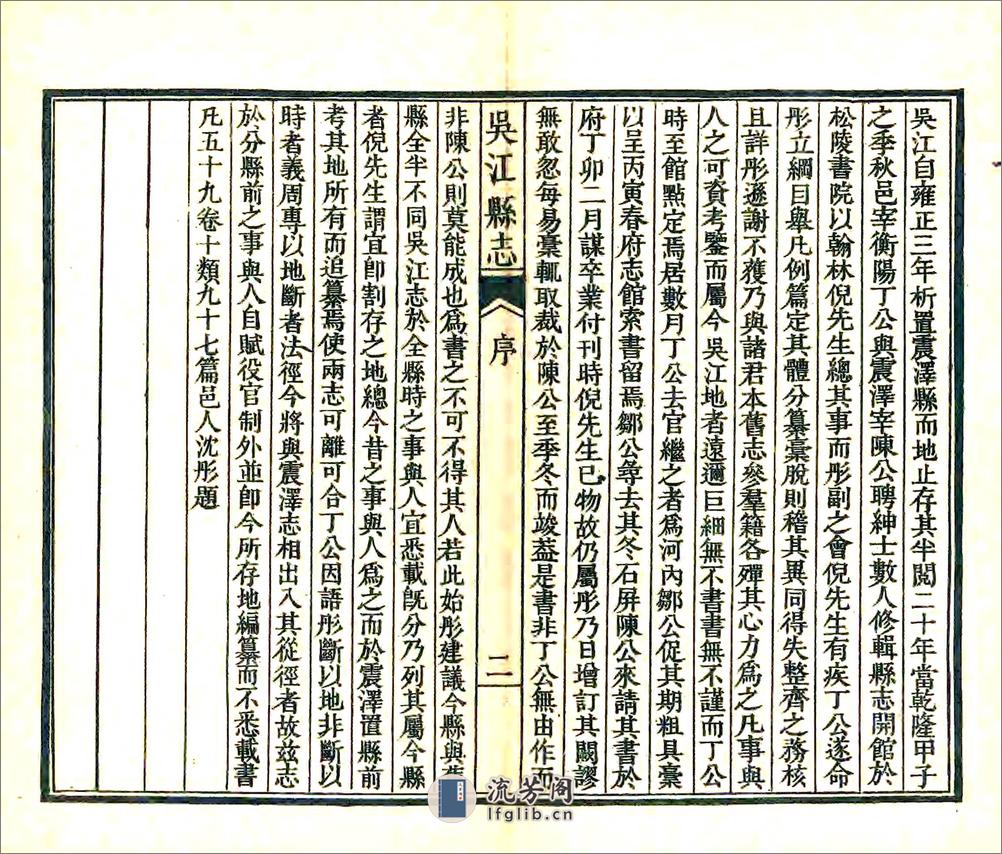 吳江自雍正三年析置震澤縣而地止存其半閱二十年當乾隆甲子
之季秋邑宰衡陽丁公與震澤宰陳公聘紳士數人修輯縣志開館於
松陵書院以翰林倪先生總其事而彤副之會倪先生有疾丁公遂命
彤立綱目舉凡例篇定其體分纂稾脫則稽其異同得失整齊之務核
且詳彤遜謝不獲乃與諸君本舊志參羣籍各殫其心力爲之凡事與
人之可資考鑒而屬今吳江地者遠邇巨細無不書書無不謹而丁公
時至館點定焉居數月丁公去官繼之者爲河內鄒公促其期粗具稾
以呈丙寅春府志館索書留焉鄒公等去其冬石屏陳公來請其書於
府丁卯二月謀卒業付刊時倪先生已物故仍屬彤乃日增訂其闕謬
無敢忽每易稾輒取裁於陳公至季冬而竣葢是書非丁公無由作而
吳江縣志
序
二
非陳公則莫能成也爲書之不可不得其人若此始彤建議今縣與舊
縣全半不同吳江志於全縣時之事與人宜悉載旣分乃列其屬今縣
者倪先生謂宜卽割存之地總今昔之事與人爲之而於震澤置縣前
考其地所有而追纂焉使兩志可離可合丁公因語彤斷以地非斷以
時者義周專以地斷者法徑今將與震澤志相出入其從徑者故兹志
於分縣前之事與人自賦役官制外並卽今所存地編纂而不悉載書
凡五十九卷十類九十七篇邑人沈彤題
流芳阁
lfglib.cn